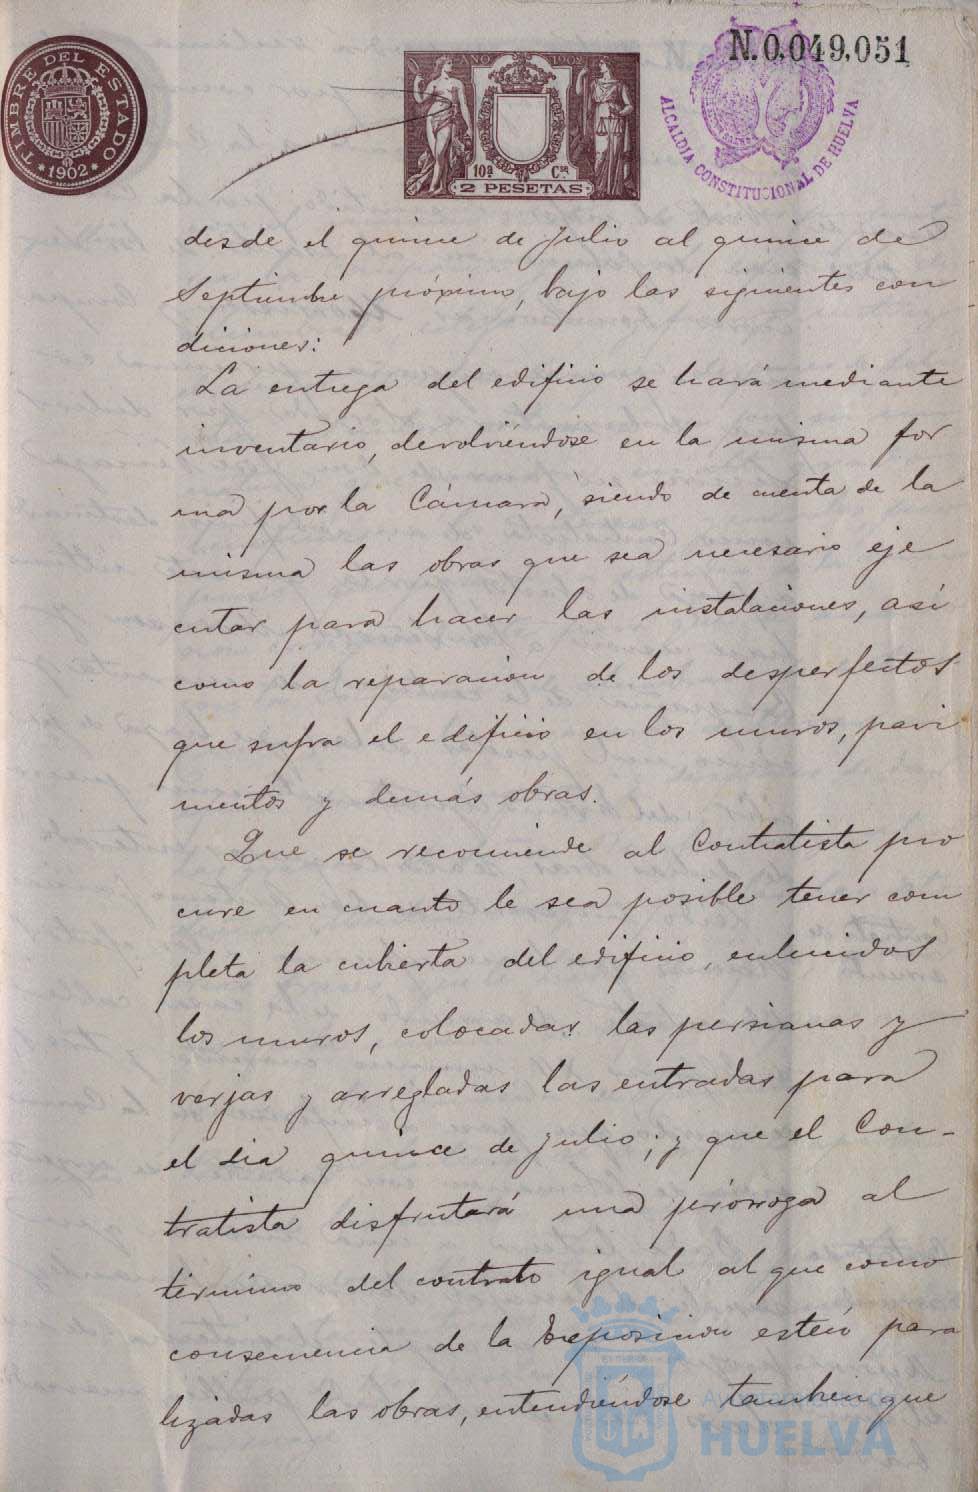 TIMBRE DEL ESTADO
*1902*
AÑO 1902
10ª Cse
2 PESETAS
N.0,049,051
ALCALDIA CONSTITUCIONAL DE HUELVA
desde el quince de Julio al quince de
Septiembre próximo, bajo las siguientes con
diciones:
La entrega del edificio se hará mediante
inventario, devolviéndose en la misma for
ma por la Cámara, siendo de cuenta de la
misma las obras que sea necesario eje
cutar para hacer las instalaciones, así
como la reparacion de los desperfectos
que sufra el edificio en los muros, pavi
mentos y demás obras.
Que se recomiende al Contratista pro
cure en cuanto le sea posible tener com
pleta la cubierta del edificio, enlucidos
los muros, colocadas las persianas y
verjas y arregladas las entradas para
el dia quince de Julio; y que el Con-
tratista disfrutará una prórroga al
término del contrato igual al que como
consecuencia de la Exposicion estén para
lizadas las obras, entendiéndose tambien que
Ayuntamiento de
HUELVA